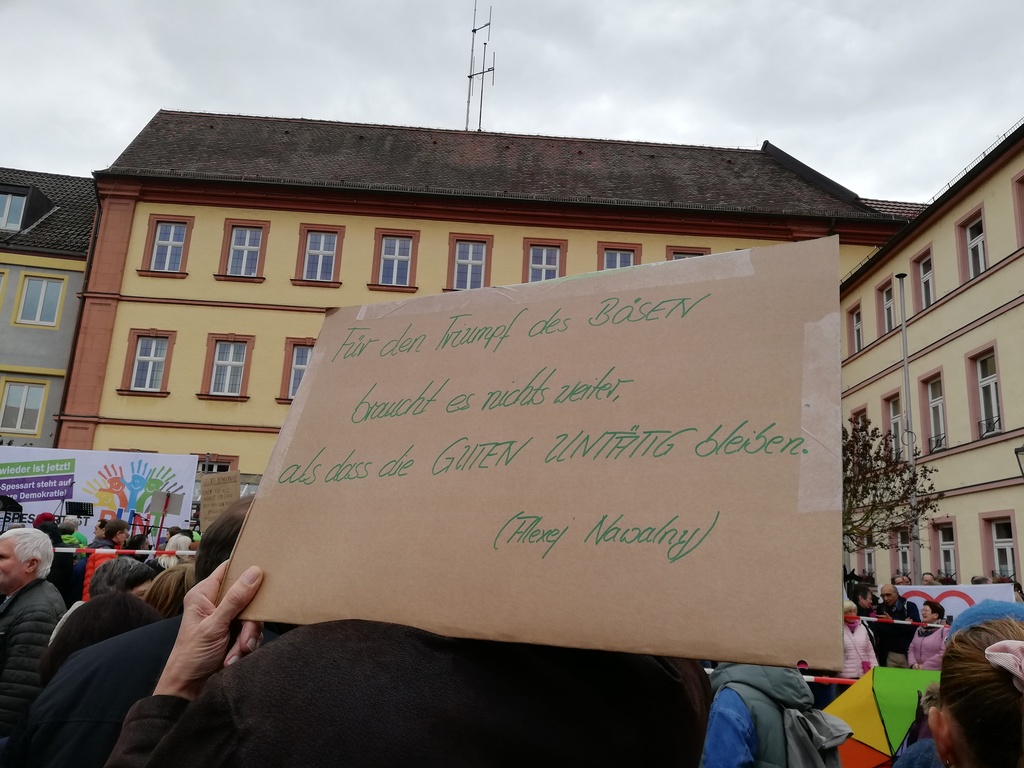 Für den Triumpf des BÖSEN
braucht es nichts weiter,
als dass die GUTEN UNTÄTIG bleiben.
(Alexej Nawalny)
wieder ist jetzt!
-Spessart steht auf
re Demokratie!